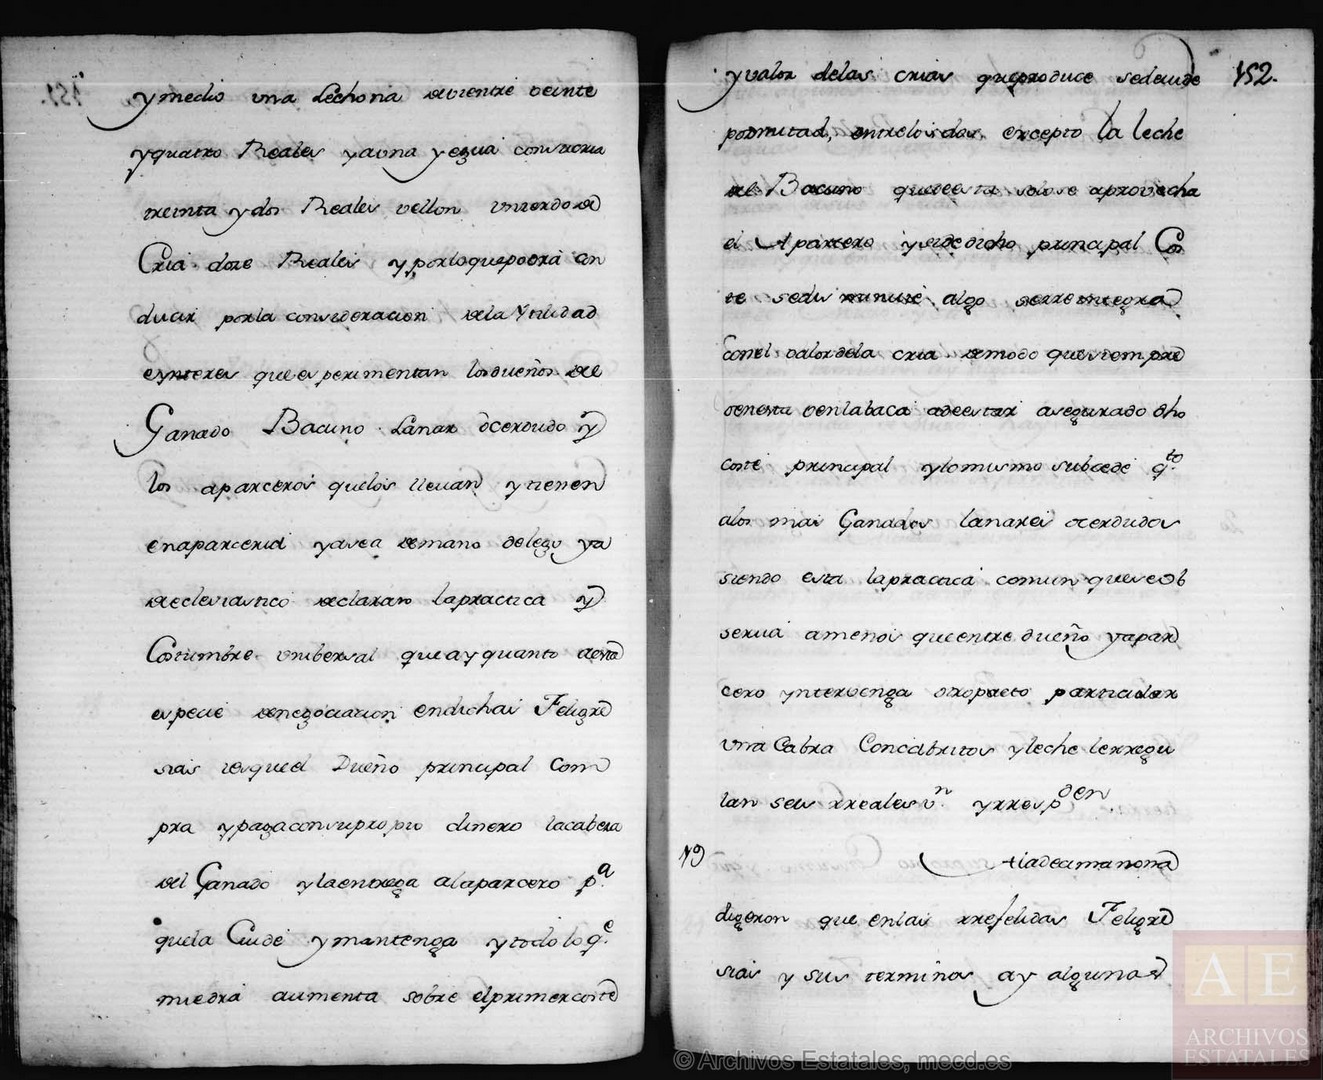 151.
y medio una Lechona de vientre veinte
y quatro Reales y a una yegua con su cria
treinta y dos Reales vellon un zerdo de
Cria doze Reales y por lo que podra con
ducir por la consideracion de la Ytilidad
e ynteres que esperimentan los dueños de
Ganado Bacuno Lanar o cerdudo y
los aparceros que los llevan y tienen
en aparceria ya sea de mano de lego ya
de eclesiastico declaran la practica y
Costumbre unibersal que ay quanto a esta
especie de negociacion en dichas Feligre
sias es que el Dueño principal Com
pra y paga con su propio dinero la cabeza
del Ganado y la entrega al aparcero pª
que la Cuide y mantenga y todo lo q.e
medra aumenta sobre el primer coste
152.
y valor de las crias que produce se deuide
por mitad, entre los dos, excepto la leche
del Bacuno que de esta solo se aprovecha
el Aparcero y si de dicho principal Cos
te se disminuie algo se rreintegra
con el valor de la cria de modo que siempre
venesta a de estar asegurado dho
coste principal y lo mismo subcede q.to
a los mas Ganados lanares o cerdudos
siendo esta la practica comun que se ob
serua a menos que entre dueño y apar
cero yntervenga otro pacto particular
una Cabra Con cabritos y leche le rregu
lan seis rreales v.n y rresp.den
19 tia de amanona
digeron que en las rrefelidas Feligre
sias y sus terminos ay algunas
A E
ARCHIVOS
ESTATALES
© Archivos Estatales, mecd.es